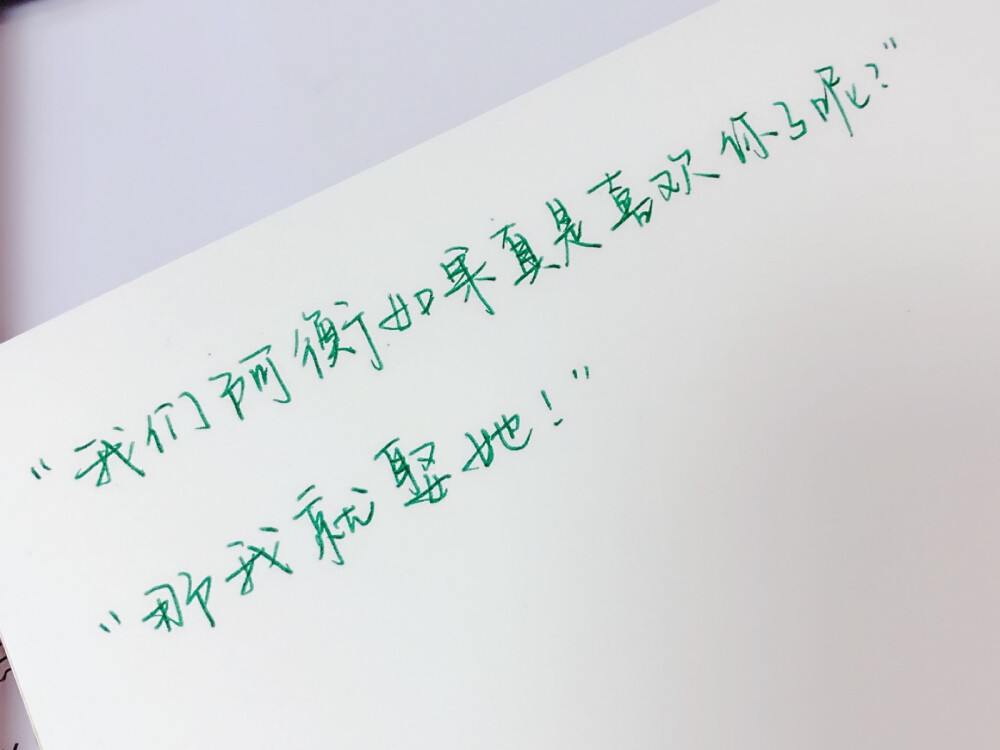 “我们阿衡如果真是喜欢你了呢？”
“那我就娶她！”